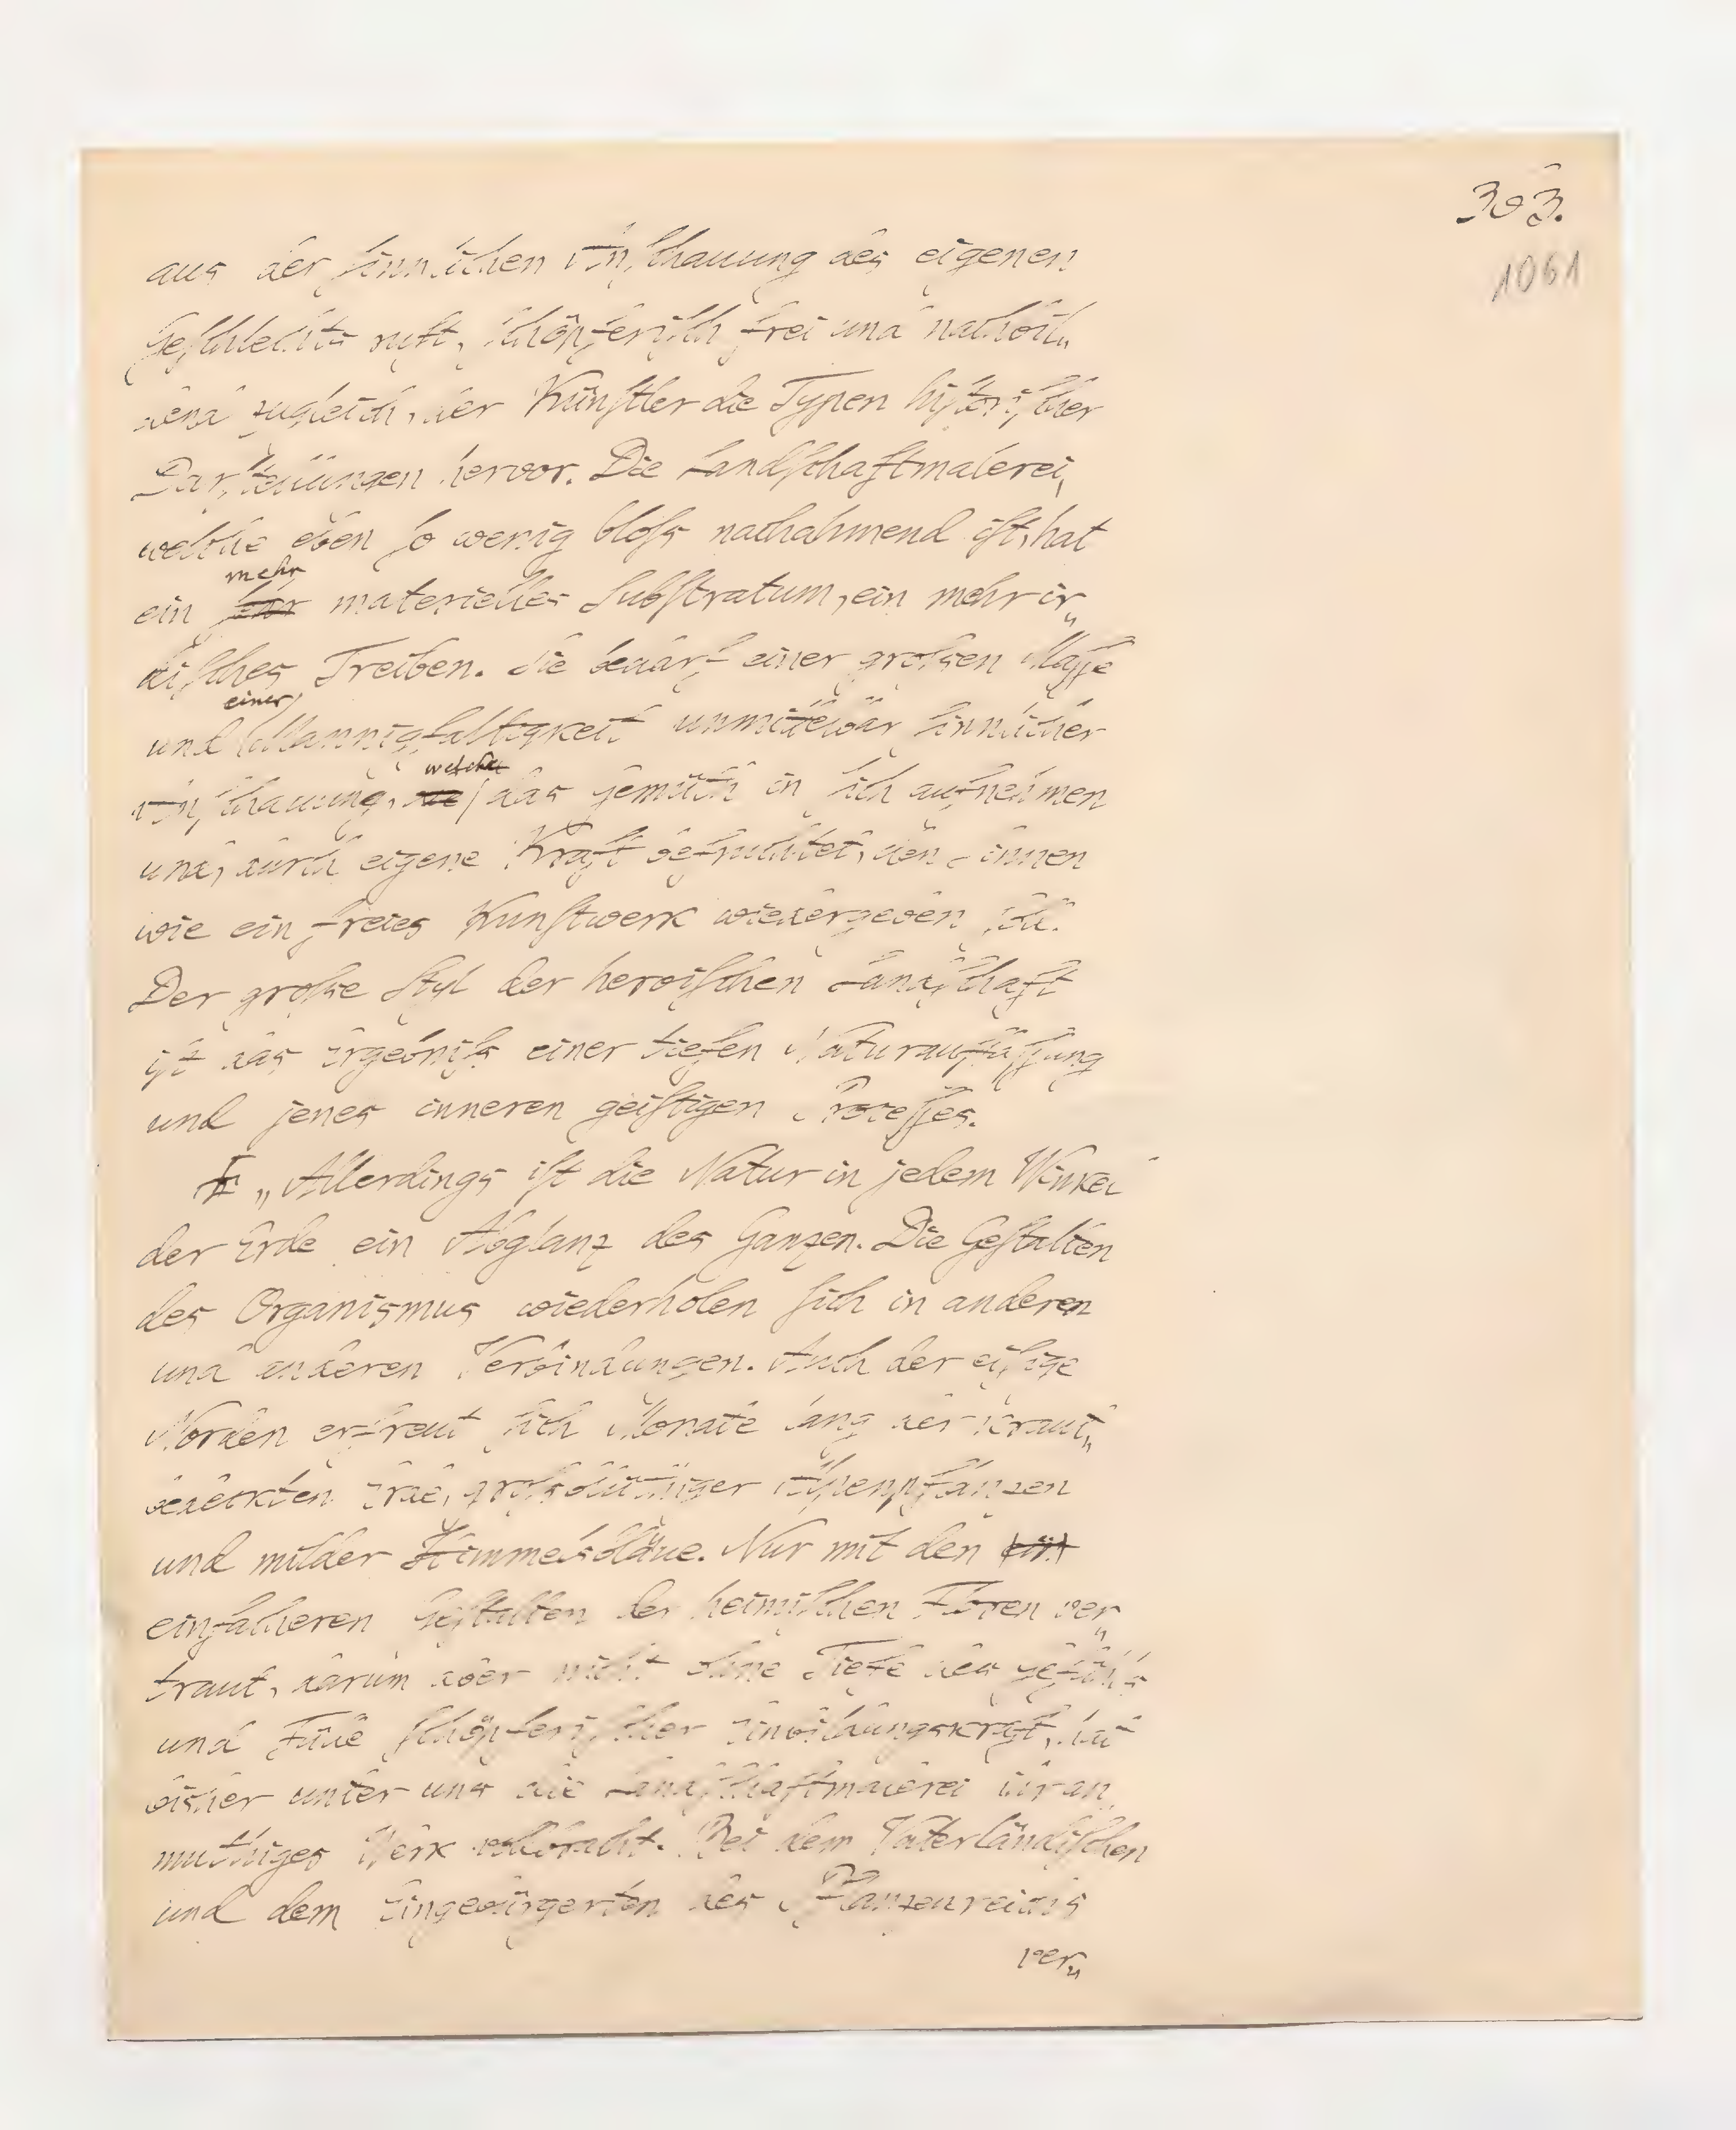 303.
1061
aus der sinnlichen Anschauung des eigenen
Geschlechts ruft, schöpferisch frei und nachbil„
dend zugleich, der Künstler die Typen historischer
Darstellungen hervor. Die Landschaftmalerei,
welche eben so wenig bloss nachahmend ist, hat
mehr
ein materielles Substratum, ein mehr ir„
disches Treiben. Sie bedarf einer grossen Masse
einer
und Mannigfaltigkeit unmittelbar sinnlicher
welche
Anschauung, die das Gemüth in sich aufnehmen
und, durch eigene Kraft befruchtet, den Sinnen
wie ein freies Kunstwerk wiedergeben soll.
Der grosse Styl der heroischen Landschaft
ist das Ergebniss einer tiefen Naturauffassung
und jenes inneren geistigen Processes.
„Allerdings ist die Natur in jedem Winkel
der Erde ein Abglanz des Ganzen. Die Gestalten
des Organismus wiederholen sich in anderen
und anderen Verbindungen. Auch der eisige
Norden erfreut sich Monate lang der kraut„
bedeckten Erde, grossblüthiger Alpenpflanzen
und milder Himmelsbläue. Nur mit den
einfacheren Gestalten der heimischen Floren ver„
traut, darum aber nicht ohne Tiefe des Gefühls
und Fülle schöpferischer Einbildungskraft, hat
bisher unter uns die Landschaftmalerei ihr an„
muthiges Werk vollbracht. Bei dem Vaterländischen
und dem Eingebürgerten des Pflanzenreichs
ver„